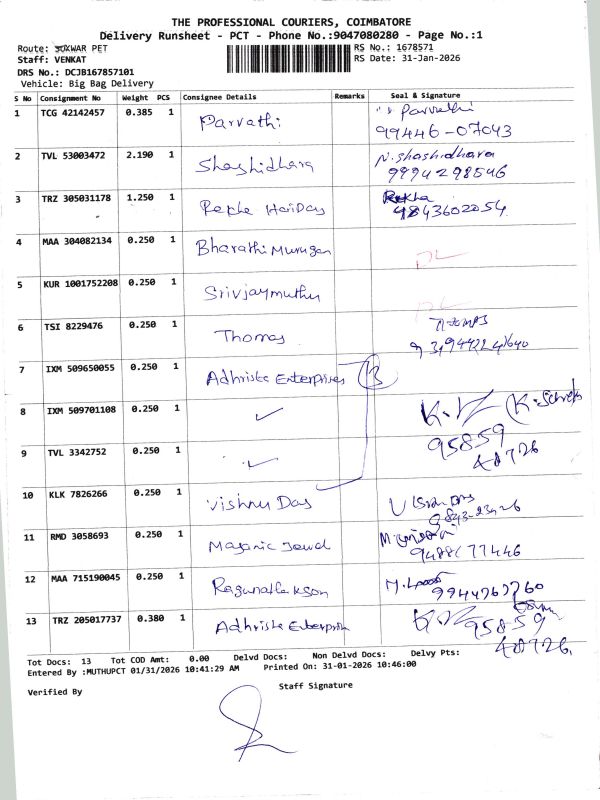 THE PROFESSIONAL COURIERS, COIMBATORE
Delivery Runsheet - PCT - Phone No.:9047080280 - Page No.:1
Route: SUKWAR PET RS No.: 1678571
Staff: VENKAT RS Date: 31-Jan-2026
DRS No.: DCJB167857101
Vehicle: Big Bag Delivery
S No Consignment No Weight PCS Consignee Details Remarks Seal & Signature
1 TCG 42142457 0.385 1 Parvathi Parvathi
99446-07043
2 TVL 53003472 2.190 1 Shashidhara N. Shashidhara
9994298546
3 TRZ 305031178 1.250 1 Rekha HariDas Rekha
9843602054
4 MAA 304082134 0.250 1 Bharathi Murugan
5 KUR 1001752208 0.250 1 Srivijaymuthu
6 TSI 8229476 0.250 1 Thomas
7 IXM 509650055 0.250 1 Adhriste Enterprises
8 IXM 509701108 0.250 1 ✓
9 TVL 3342752 0.250 1 ✓ 95859
48726
10 KLK 7826266 0.250 1 Vishnu Das
11 RMD 3058693 0.250 1 Masonic Jewel
9488677446
12 MAA 715190045 0.250 1
13 TRZ 205017737 0.380 1 Adhriste Enterprise 95859
48726
Tot Docs: 13 Tot COD Amt: 0.00 Delvd Docs: Non Delvd Docs: Delvy Pts:
Entered By :MUTHUPCT 01/31/2026 10:41:29 AM Printed On: 31-01-2026 10:46:00
Verified By Staff Signature